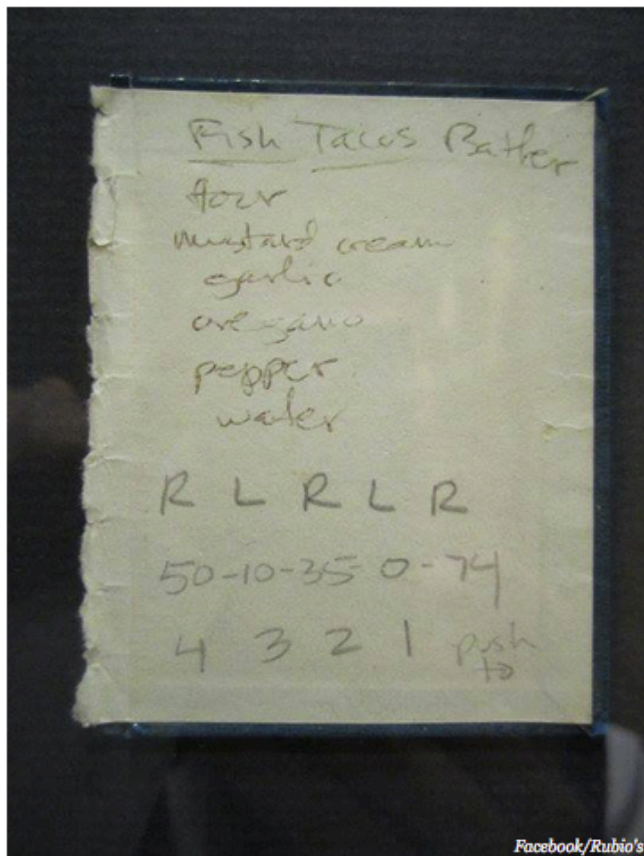 Fish Tacos Batter
flour
mustard cream
garlic
oregano
pepper
water
R L R L R
50-10-35-0-74
4 3 2 1 push
to
Facebook/Rubio's